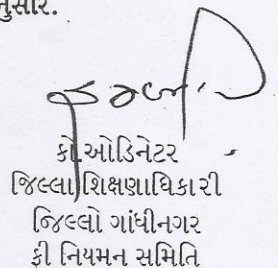 નુસાર.
કો.ઓડિનેટર
જિલ્લા શિક્ષણાધિકારી
જિલ્લો ગાંધીનગર
ફી નિયમન સમિતિ